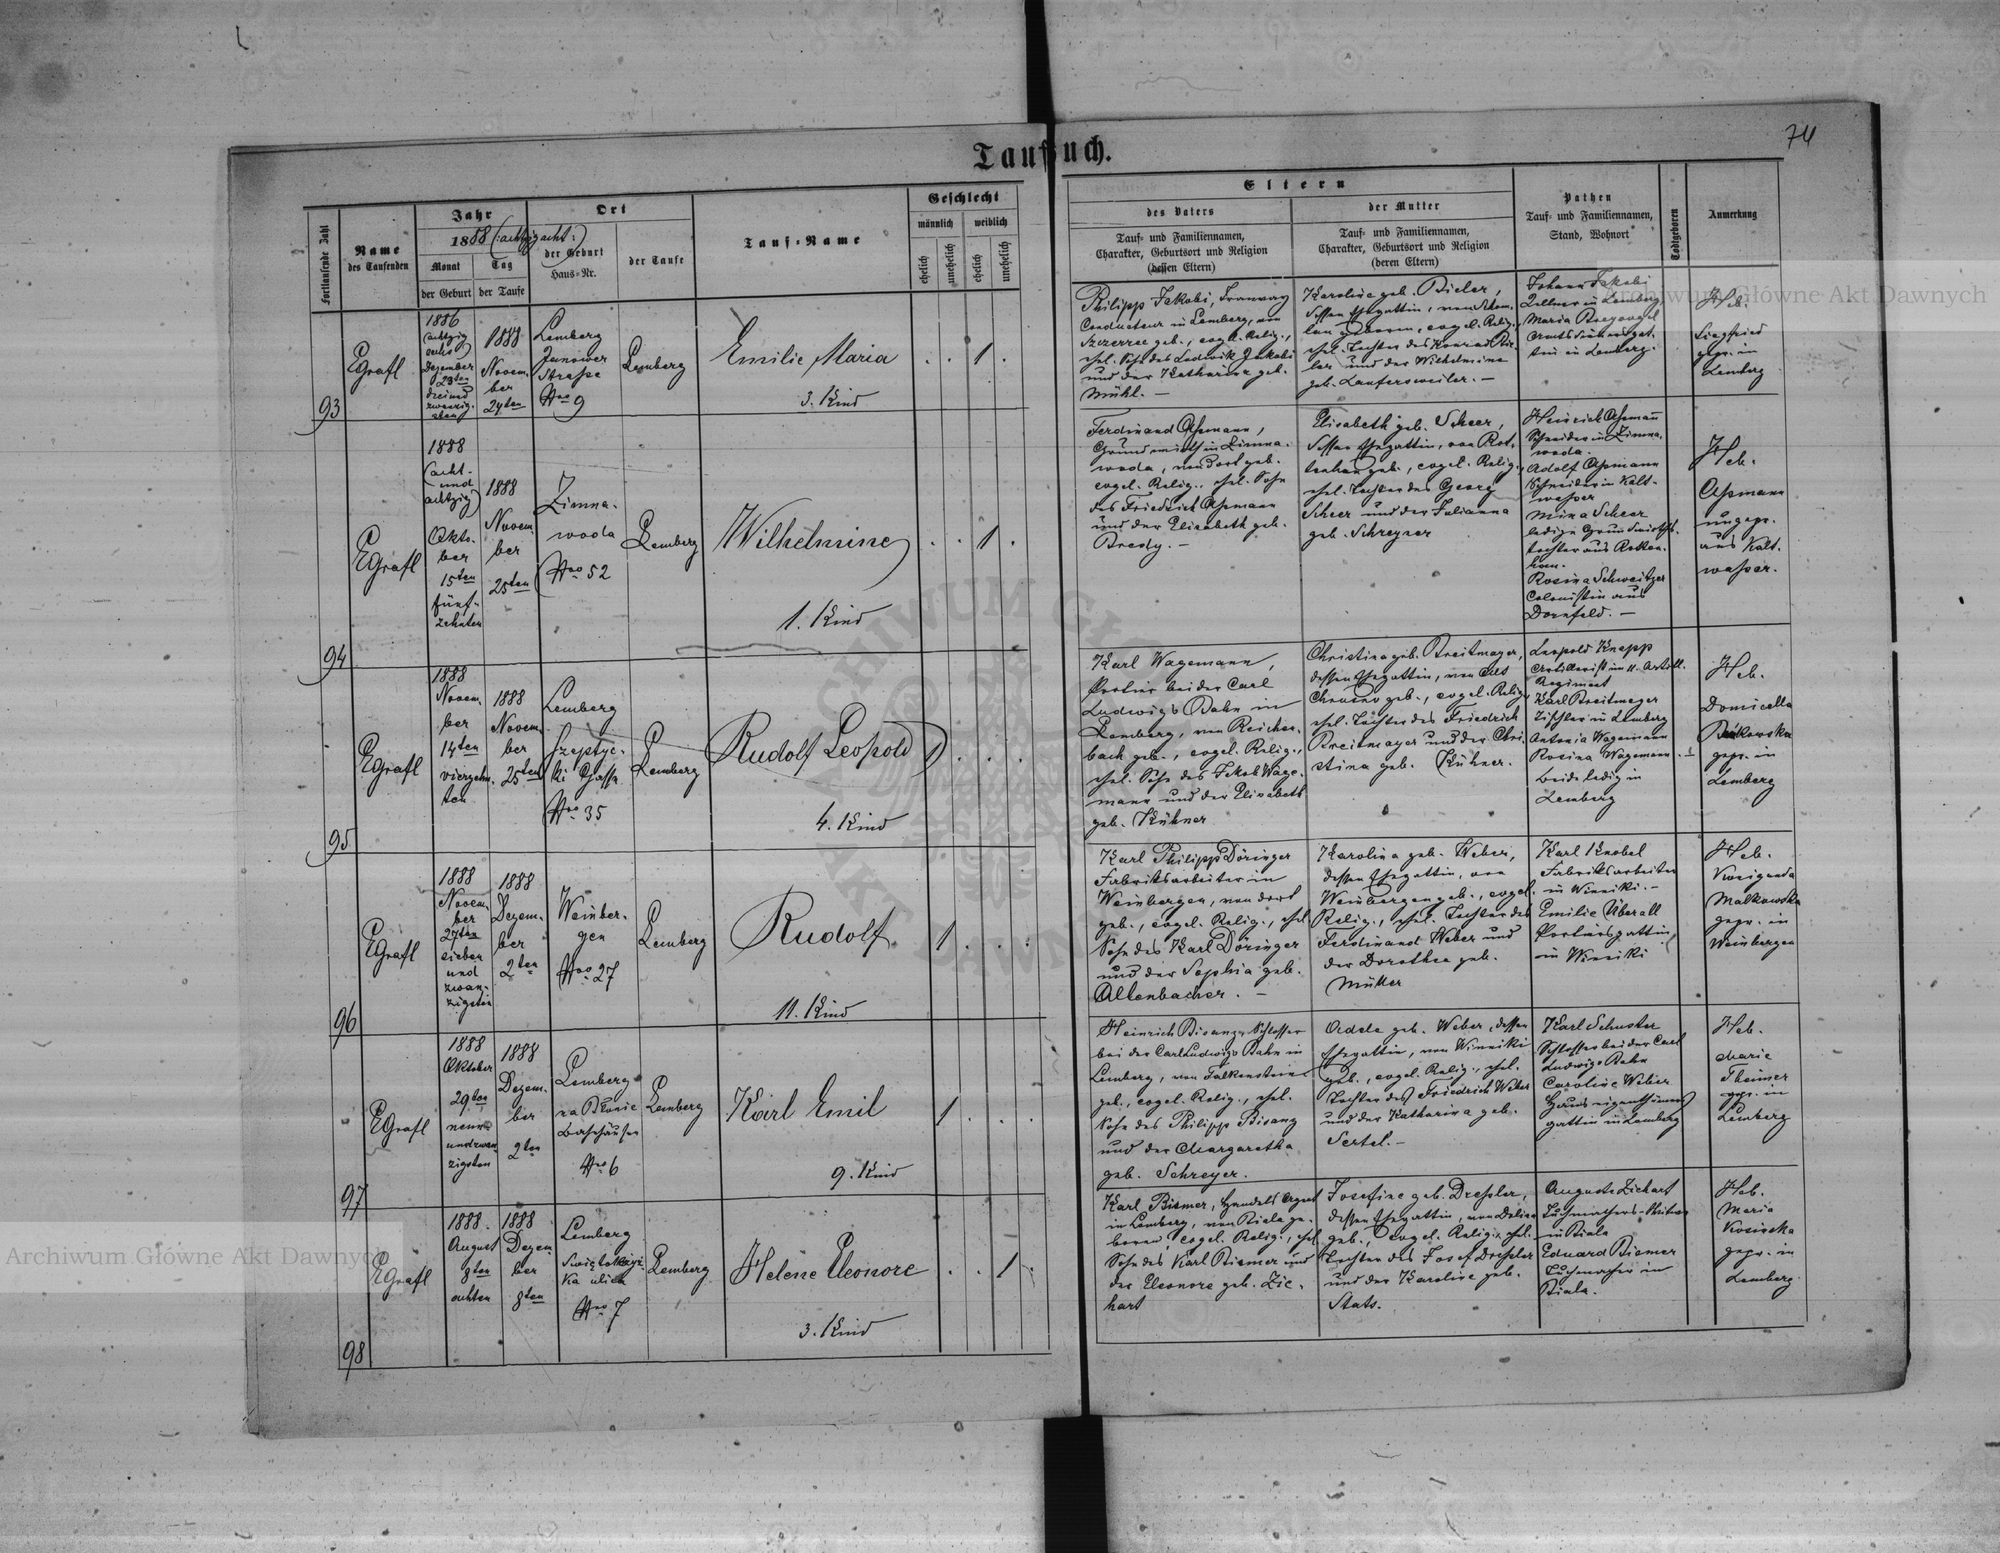 74
Taufbuch.
Fortlaufende Zahl
Name
des Taufenden
Jahr
1888 (:achtzig acht:)
Monat
der Geburt
Tag
der Taufe
Ort
der Geburt
Haus-Nr.
der Taufe
Tauf-Name
Geschlecht
männlich
weiblich
ehelich
unehelich
ehelich
unehelich
Eltern
des Vaters
Tauf- und Familiennamen,
Charakter, Geburtsort und Religion
(dessen Eltern)
der Mutter
Tauf- und Familiennamen,
Charakter, Geburtsort und Religion
(deren Eltern)
Pathen
Tauf- und Familiennamen,
Stand, Wohnort
Todtgeboren
Anmerkung
93
EGrafl
1886
(achtzig
sechs)
Dezember
23ten
drei und
zwanzig-
sten
1888
Novem-
ber
24ten
Lemberg
Janower
Straße
Nro 9
Lemberg
Emilie Maria
3. Kind
1
Philipp Jakobi, Tramway
Conducteur in Lemberg, von
geb., evgel. Relig.,
ehel. Sohn des Ludwik Jakobi
und der Katharina geb.
Mühl. —
Karoline geb. Bieler,
dessen Ehegattin, von
geboren, evgel. Relig.,
ehel. Tochter des Konrad Bie-
ler und der Wilhelmine
geb. Laufersweiler. —
Johann Jakobi
in Lemberg
Maria
in Lemberg.
Heb.
Siegfried
gepr. in
Lemberg
94
EGrafl
1888
(acht-
und
achtzig)
Okto-
ber
15ten
fünf-
zehnten
1888
Novem-
ber
25ten
Zimna-
woda
Nro 52
Lemberg
Wilhelmine
1. Kind
1
Ferdinand Aßmann,
Grundwirth in Zimna-
woda, von dort geb.
evgel. Relig., ehel. Sohn
des Friedrich Aßmann
und der Elisabeth geb.
Bredy. —
Elisabeth geb. Scheer,
dessen Ehegattin, von Rot-
tenhan geb., evgel. Relig.,
ehel. Tochter des Georg
Scheer und der Julianna
geb. Schreyner
Heinrich Aßmann
Schneider in Zimna-
woda.
Adolf Aßmann
Schneider in Kalt-
wasser
Mina Scheer
ledige Grundwirths-
tochter aus Rotten-
han.
Rosina Schweitzer
Colonistin aus
Dornfeld. —
Heb.
Aßmann
ungepr.
aus Kalt-
wasser.
95
EGrafl
1888
Novem-
ber
14ten
vierzehn-
ten
1888
Novem-
ber
25ten
Lemberg
Szeptyc-
ki Gasse
Nro 35
Lemberg
Rudolf Leopold
4. Kind
1
Karl Wagemann,
Portier bei der Carl
Ludwigs Bahn in
Lemberg, von Reichen-
bach geb., evgel. Relig.,
ehel. Sohn des Jakob Wage-
mann und der Elisabeth
geb. Kühner
Christina geb. Breitmayer,
dessen Ehegattin, von Alt
Chrusno geb., evgel. Relig.,
ehel. Tochter des Friedrich
Breitmayer und der Chri-
stina geb. Kühner.
Leopold Knapp
Artillerist im 11. Artill.
Regiment
Karl Breitmeyer
Tischler in Lemberg
Antonia Wagemann
Rosina Wagemann. —
beide ledig in
Lemberg
Heb.
Domicella
gepr. in
Lemberg
96
EGrafl
1888
Novem-
ber
27ten
sieben
und
zwan-
zigsten
1888
Dezem-
ber
2ten
Weinber-
gen
Nro 27
Lemberg
Rudolf
11. Kind
1
Karl Philipp Döringer
Fabriksarbeiter in
Weinbergen, von dort
geb., evgel. Relig., ehel.
Sohn des Karl Döringer
und der Sophia geb.
Altenbacher. —
Karolina geb. Weber,
dessen Ehegattin, von
Weinbergen geb., evgel.
Relig., ehel. Tochter des
Ferdinand Weber und
der Dorothea geb.
Müller
Karl Knobel
Fabriksarbeiter
in Winniki. —
Emilie Überall
Portiersgattin
in Winniki
Heb.
Kunigunda
Malkowska
gepr. in
Weinbergen
97
EGrafl
1888
Oktober
29ten
neun
undzwan-
zigsten
1888
Dezem-
ber
2ten
Lemberg
na Błonie
Bahnhäuser
Nro 6
Lemberg
Karl Emil
9. Kind
1
Heinrich Bisanz, Schlosser
bei der Carl Ludwigs Bahn in
Lemberg, von Falkenstein
geb., evgel. Relig., ehel.
Sohn des Philipp Bisanz
und der Margaretha
geb. Schreyer.
Adele geb. Weber, dessen
Ehegattin, von Winniki
geb., evgel. Relig., ehel.
Tochter des Friedrich Weber
und der Katharina geb.
Sertel. —
Karl Schuster
Schlosser bei der Carl
Ludwigs Bahn
Caroline Weber
Hauseigenthümers
gattin in Lemberg
Heb.
Marie
Theimer
gepr. in
Lemberg
98
EGrafl
1888.
August
8ten
achten
1888
Dezem-
ber
8ten
Lemberg
Swiętokrzyz-
ka ulica
Nro 7
Lemberg
Helene Eleonore
3. Kind
1
Karl Biemer, Handels Agent
in Lemberg, von Biala ge-
boren, evgel. Relig., ehel.
Sohn des Karl Biemer und
der Eleonore geb. Zic-
hart
Josefine geb. Dreßler,
dessen Ehegattin, von
geb., evgel. Relig., ehel.
Tochter des Josef Dreßler
und der Karoline geb.
Stats.
Auguste Zichart
Tuchmachers-Witwe
in Biala
Eduard Biemer
Tuchmacher in
Biala.
Heb.
Maria
Kosinska
gepr. in
Lemberg.
Archiwum Główne Akt Dawnych
Archiwum Główne Akt Dawnych
ARCHIWUM GŁÓWNE
AKT DAWNYCH